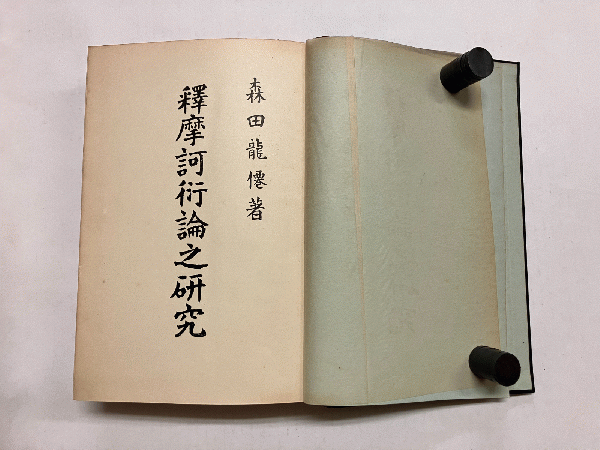 森田龍僊著
釋摩訶衍論之研究